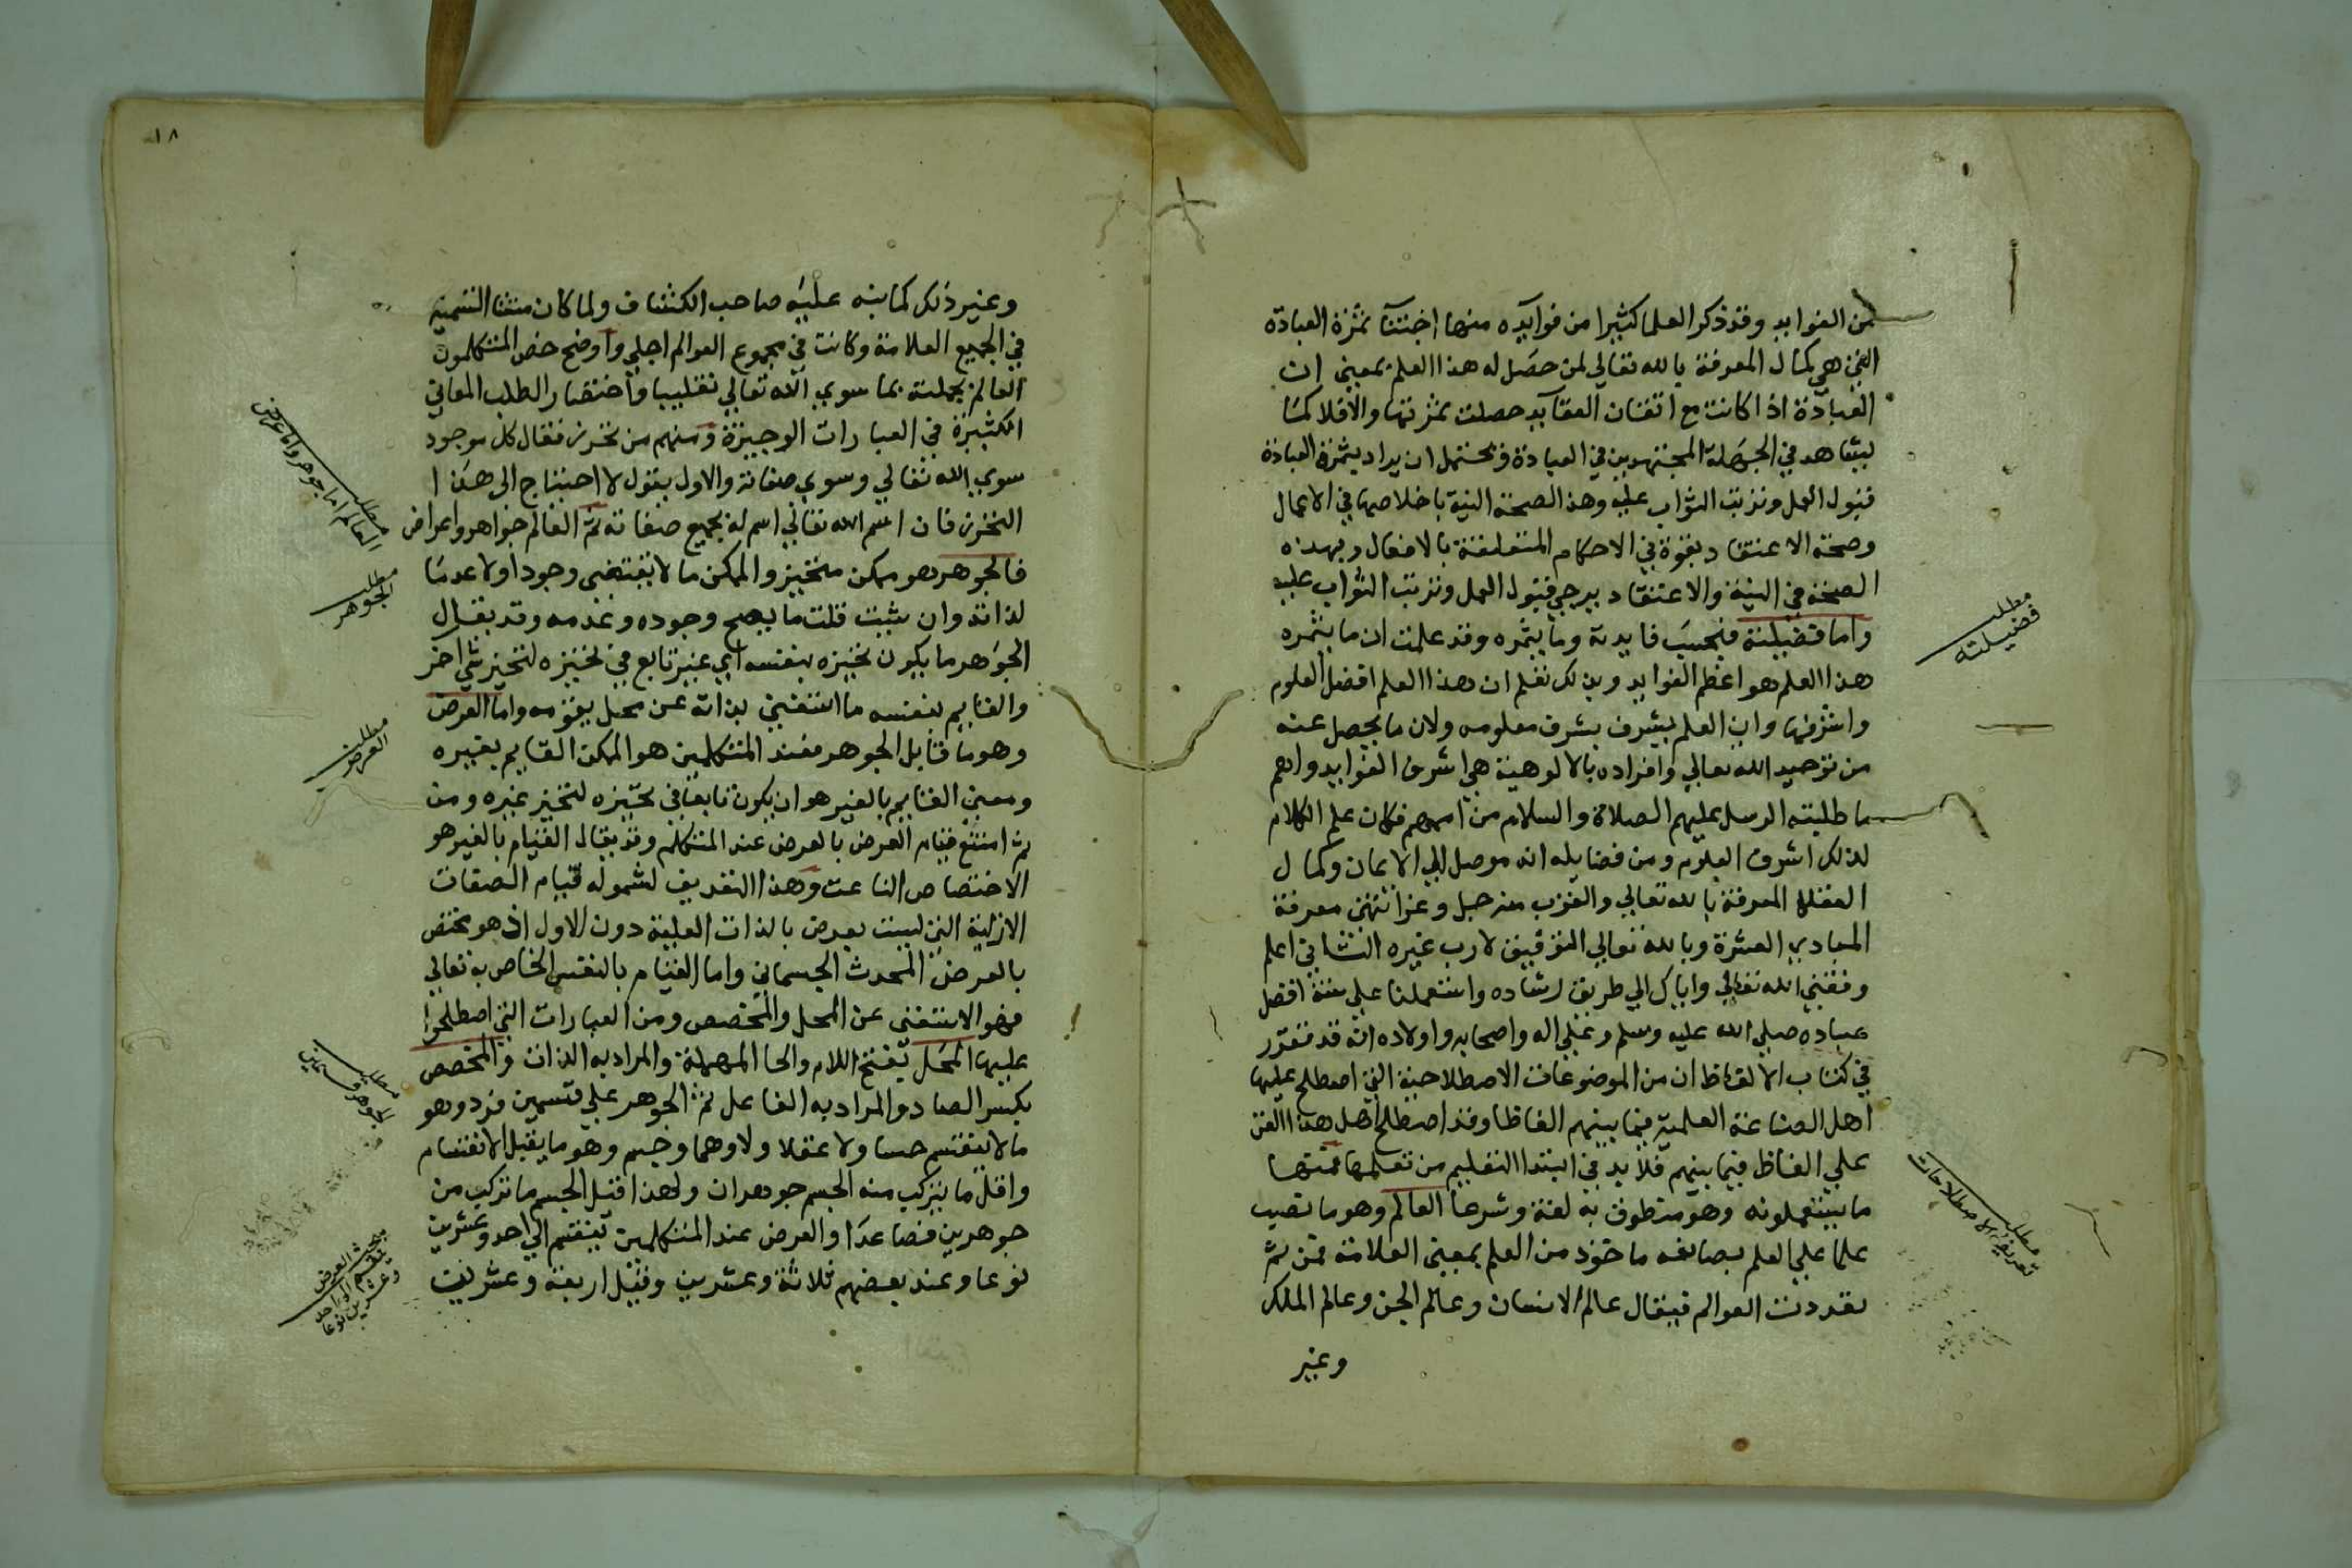 من الفوايد وقد ذكر العلما كثيرا من فوايده منها اجتنآ ثمرة العبادة
التي هي كمال المعرفة بالله تعالى لمن حصل له هذا العلم بمعنى ان
العبادة اذا كانت مع اتقان العقآيد حصلت ثمرتها والا فلا كما
يشاهد في الجهلة المجتهدين في العبادة ويحتمل ان يراد بثمرة العبادة
قبول العمل وترتب الثواب عليه وهذا لصحة النية باخلاصها في الاعمال
وصحة الاعتقاد بقوة في الاحكام المتعلقة بالافعال وبهذه
الصحة في النية والاعتقاد يرجى قبول العمل وترتب الثواب عليه
واما فضيلته فبحسب فايدته وما يثمره وقد علمت ان ما يثمره
هذا العلم هو اعظم الفوايد وبذلك تعلم ان هذا العلم افضل العلوم
واشرفها وان العلم يشرف بشرف معلومه ولان ما يحصل عنه
من توحيد الله تعالى وافراده بالالوهية هي اشرف الفوايد واهم
ما طلبته الرسل عليهم الصلاة والسلام من اممهم فكان علم الكلام
لذلك اشرف العلوم ومن فضايله انه موصل الى الايمان وكمال
العقل المعرفة بالله تعالى والقرب منه جل وعز انتهى معرفة
المبادي العشرة وبالله تعالى التوفيق لا رب غيره الثاني اعلم
وفقني الله تعالى واياك الى طريق رشاده واستعملنا على سنة افضل
عباده صلى الله عليه وسلم وعلى اله واصحابه واولاده انه قد تقرر
في كتاب الالفاظ ان من الموضوعات الاصطلاحية التي اصطلح عليها
اهل الصناعة العلمية فيما بينهم الفاظا وقد اصطلح اهل هذا الفن
على الفاظ فيما بينهم فلا بد في ابتدا التعليم من تعلمها فمنها
ما يستعملونه وهو متطوف به لغة وشرعا العالم وهو ما نصب
علما على العلم بصانعه ماخوذ من العلم بمعنى العلامة فمن ثم
تعددت العوالم فيقال عالم الانسان وعالم الجن وعالم الملك
وغير
مطلب
فضيلته
مطلب
تعريف الاصطلاحات
١٨
وغير ذلك كما نبه عليه صاحب الكشاف ولما كان منشا التسمية
في الجميع العلامة وكانت في مجموع العوالم اجلي واوضح خص المتكلمون
العالم بجملته بما سوى الله تعالى تغليبا واختصارا لطلب المعاني
الكثيرة في العبارات الوجيزة ومنهم من تحرز فقال كل موجود
سوى الله تعالى وسوى صفاته والاول يقول لا احتياج الى هذا
التحرز فان اسم الله تعالى اسم له بجميع صفاته ثم العالم جواهر واعراض
فالجوهر هو ممكن متحيز والممكن ما لا يقتضي وجودا ولا عدما
لذاته وان شئت قلت ما يصح وجوده وعدمه وقد يقال
الجوهر ما يكون تحيزه بنفسه اي غير تابع في تحيزه لتحيز شي اخر
والقايم بنفسه ما استغنى بذاته عن محل يقومه واما العرض
وهو ما قابل الجوهر فعند المتكلمين هو الممكن القايم بغيره
ومعنى القايم بالغير هو ان يكون تابعا في تحيزه لتحيز غيره ومن
ثم امتنع قيام العرض بالعرض عند المتكلم وقد يقال القيام بالغير هو
الاختصاص الناعت وهذا التعريف لشموله قيام الصفات
الازلية التي ليست بعرض بالذات العلية دون الاول اذ هو مختص
بالعرض المحدث الجسماني واما القيام بالنفس الخاص به تعالى
فهو الاستغنى عن المحل والمخصص ومن العبارات التي اصطلحوا
عليها المحل بفتح اللام والحا المهملة والمراد به الذات والمخصص
بكسر الصاد والمراد به الفاعل ثم الجوهر على قسمين فرد وهو
ما لا ينقسم حسا ولا عقلا ولا وهما وجسم وهو ما يقبل الانقسام
واقل ما يتركب منه الجسم جوهران ولهذا قيل الجسم ما تركب من
جوهرين فصاعدا والعرض عند المتكلمين ينقسم الى احد وعشرين
نوعا وعند بعضهم ثلاثة وعشرين وقيل اربعة وعشرين
مطلب
العالم اما جوهر واما عرض
مطلب
الجوهر
مطلب
العرض
مطلب
الجوهر قسمين
مبحث العرض
ينقسم الى احد
وعشرين نوعا